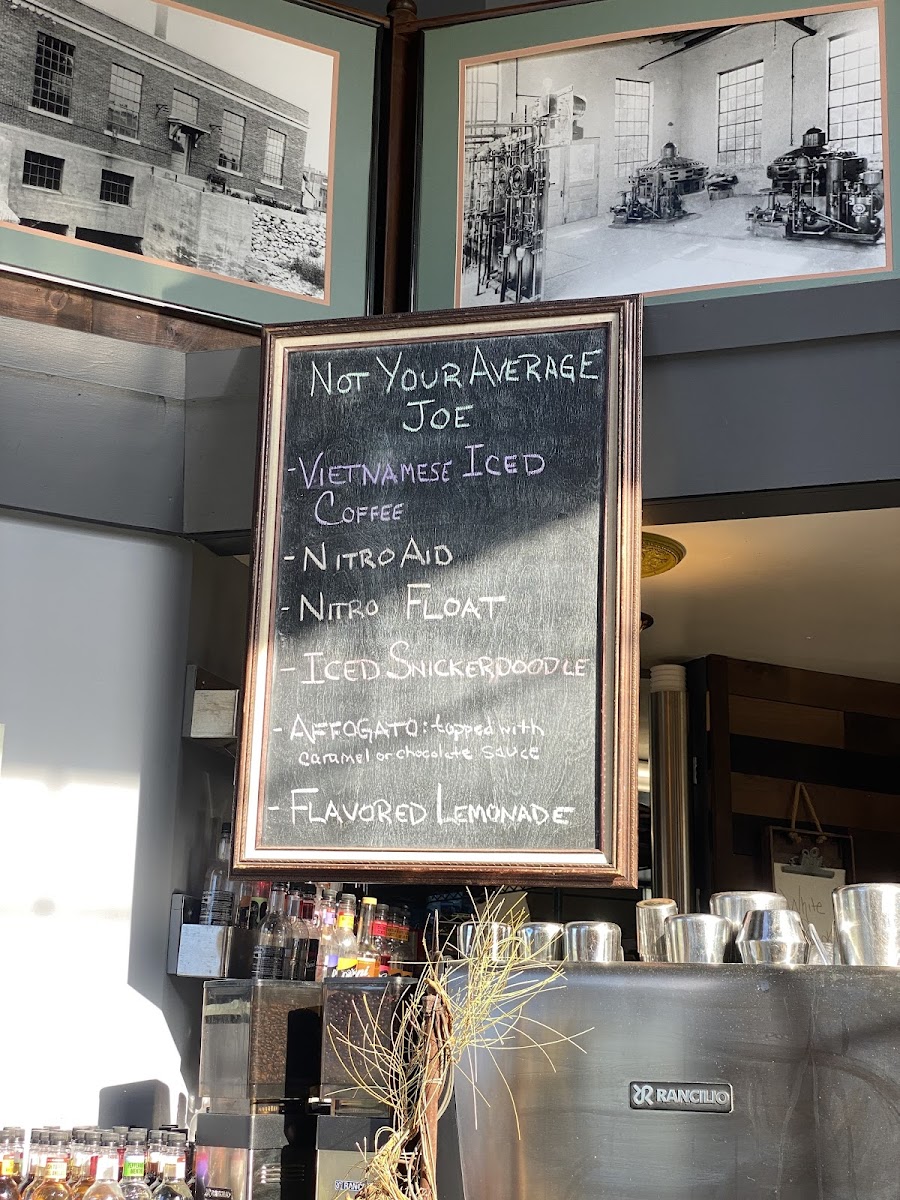 NOT YOUR AVERAGE
JOE
- VIETNAMESE ICED
COFFEE
- NITRO AID
- NITRO FLOAT
- ICED SNICKERDOODLE
- AFFOGATO: topped with
caramel or chocolate sauce
- FLAVORED LEMONADE
White
RANCILIO